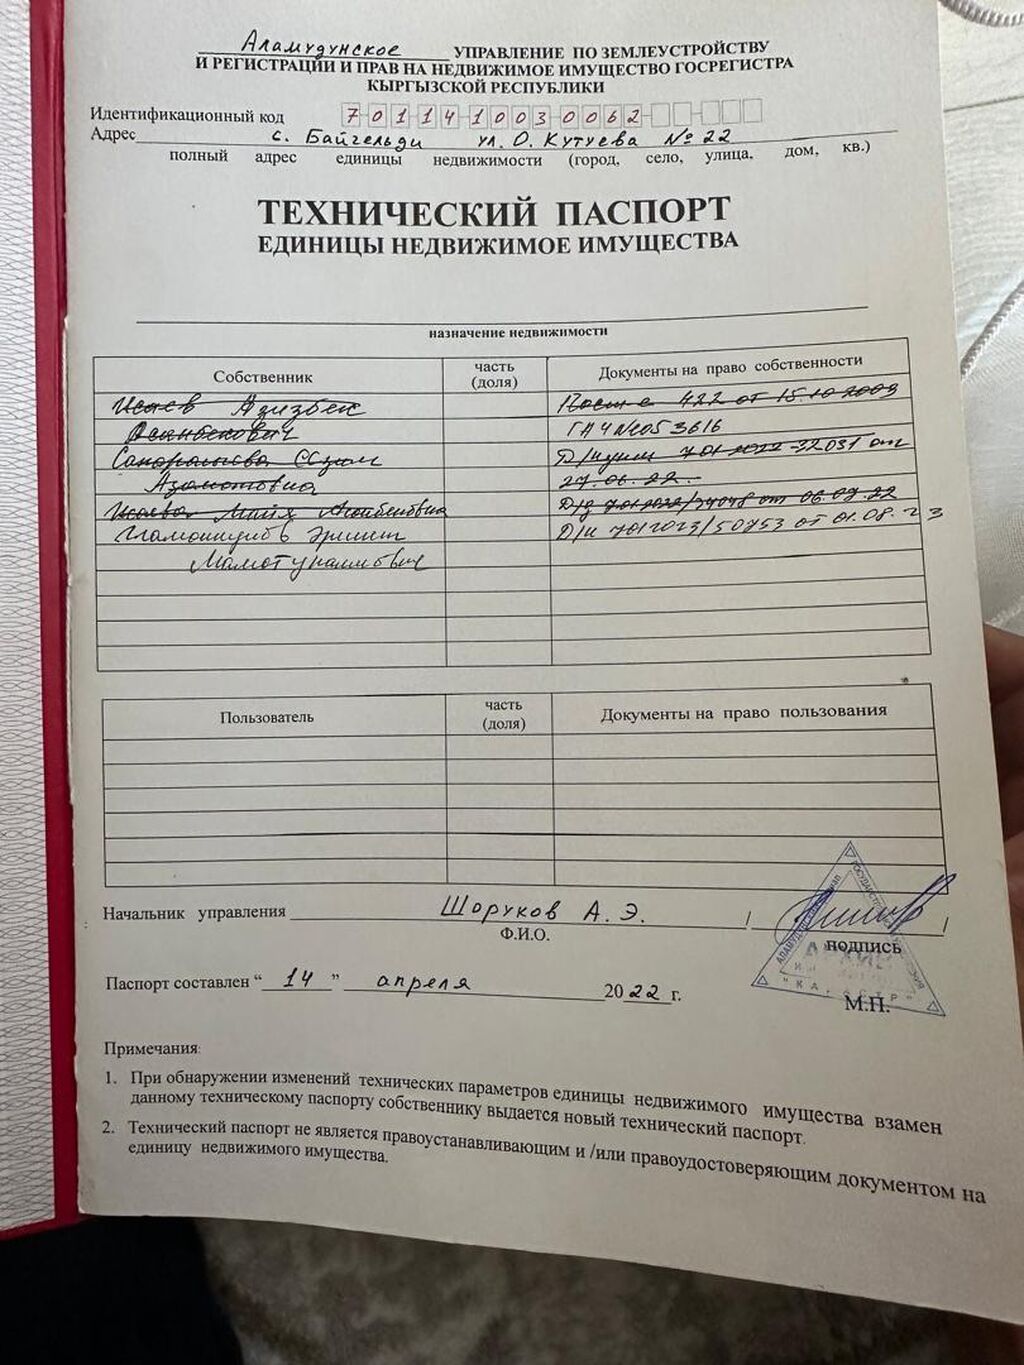 Аламудунское УПРАВЛЕНИЕ ПО ЗЕМЛЕУСТРОЙСТВУ
И РЕГИСТРАЦИИ И ПРАВ НА НЕДВИЖИМОЕ ИМУЩЕСТВО ГОСРЕГИСТРА
КЫРГЫЗСКОЙ РЕСПУБЛИКИ
Идентификационный код 7 0 1 1 4 1 0 0 3 0 0 6 2
Адрес с. Байгельди ул. О. Кутуева № 22
полный адрес единицы недвижимости (город, село, улица, дом, кв.)
ТЕХНИЧЕСКИЙ ПАСПОРТ
ЕДИНИЦЫ НЕДВИЖИМОЕ ИМУЩЕСТВА
назначение недвижимости
Собственник часть (доля) Документы на право собственности
Исаев Азизбек 422 от 15.10.2009
Осанбекович ГАЧ №053616
от
Азаматовна 27.06.22.
Исаева от 06.07.22
Д/к 7012023/50753 от 01.08.23
Пользователь часть (доля) Документы на право пользования
Начальник управления Шоруков А. Э. / /
Ф.И.О. подпись
Паспорт составлен “ 14 ” апреля 2022 г.
М.П.
"КАДАСТР"
Примечания:
1. При обнаружении изменений технических параметров единицы недвижимого имущества взамен
данному техническому паспорту собственнику выдается новый технический паспорт.
2. Технический паспорт не является правоустанавливающим и /или правоудостоверяющим документом на
единицу недвижимого имущества.